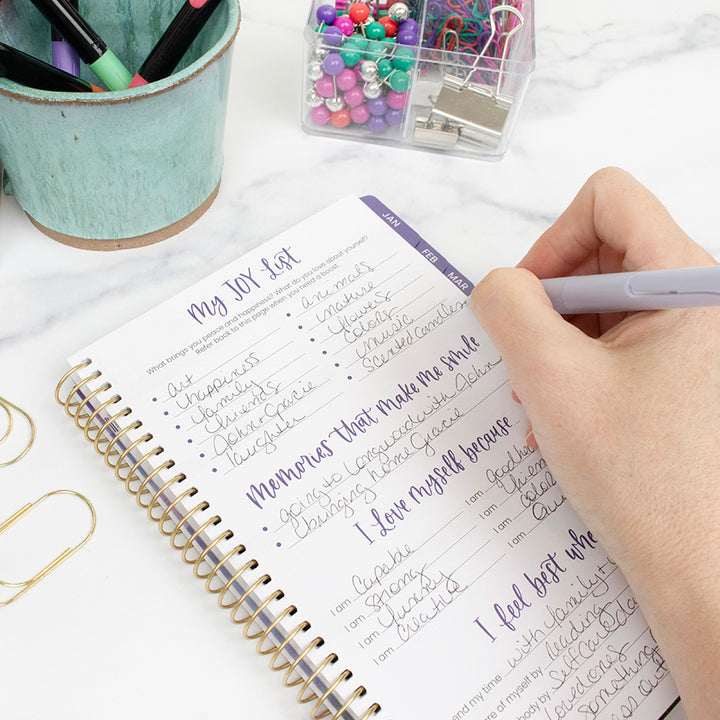 JAN
FEB
MAR
My JOY List
What brings you peace and happiness? What do you love about yourself?
Refer back to this page when you need a boost.
art
happiness
family
friends
John & Gracie
laughter
animals
nature
flowers
colors
music
scented candles
Memories that make me smile
going to Longwood with John
bringing home Gracie
I Love myself because
I am capable
I am strong
I am funny
I am creative
I am
I am
I am color
I am
I feel best whe
end my time with family +
are of myself by reading
body by self care
loved ones
something